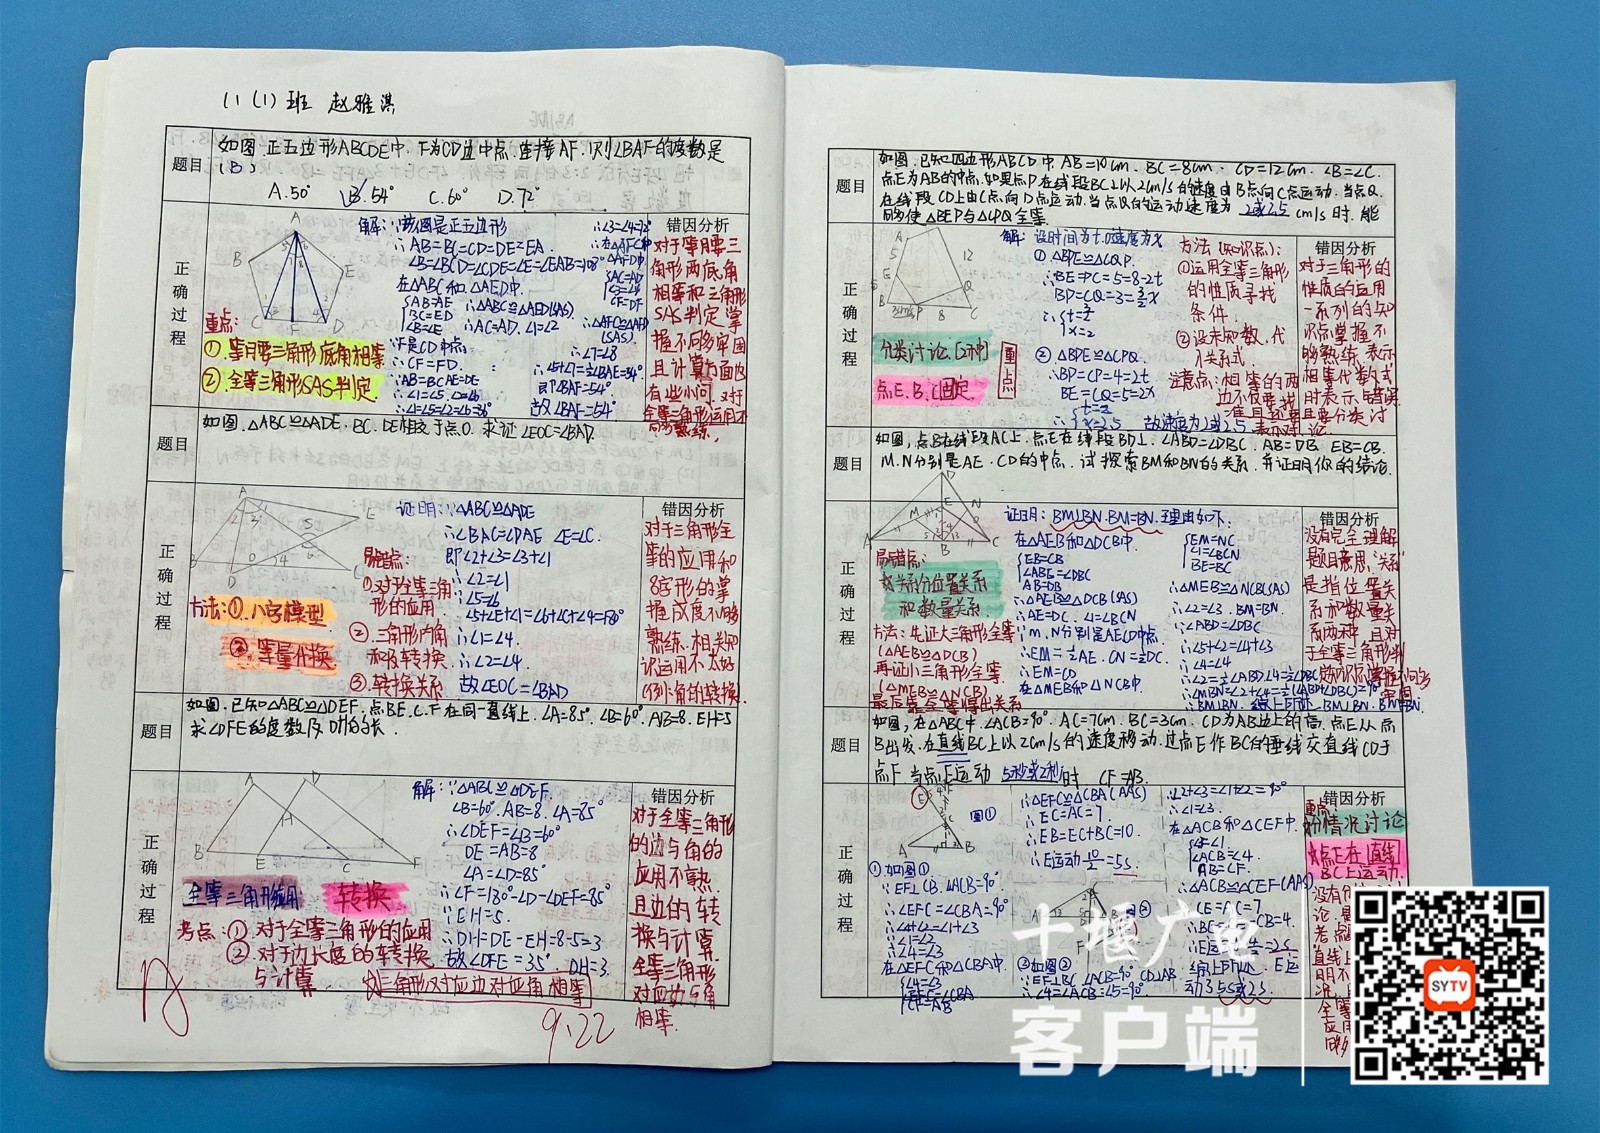 11(1)班 赵雅淇
题目
如图.正五边形ABCDE中.F为CD边中点.连接AF.则∠BAF的度数是
(B)
A.50° B.54° C.60° D.72°
正确过程
A
B
E
C
F
D
重点:
①等腰三角形底角相等
②全等三角形SAS判定.
解:∵该图是正五边形
∴AB=BC=CD=DE=EA.
∠B=∠BCD=∠CDE=∠E=∠EAB=108°
在△ABC和△AED中.
AB=AE
BC=ED
∠B=∠E
∴△ABC≌△AED(SAS)
∴AC=AD.∠1=∠2
∵F是CD中点
∴CF=FD.
∵AB=BC AE=DE
∴∠1=∠5.∠2=∠6
∴∠1=∠5=∠2=∠6=36°
∴∠3=∠4=72°
在△AFC中
△AFD中
AC=AD
∠3=∠4
CF=DF
∴△AFC≌△AFD
(SAS).
∴∠7=∠8
∴∠5+∠7=½∠BAE=54°
即∠BAF=54°
故∠BAF=54°
错因分析
对于等腰三
角形两底角
相等和三角形
SAS判定掌
握不同够牢固
且计算方面也
有些小问.对
全等三角形运用不
同够熟练,
题目
如图.△ABC≌△ADE.BC.DE相交于点O.求证∠EOC=∠BAD.
正确过程
A
E
B
D
O
C
方法:①.八字模型
②.等量代换
证明:∵△ABC≌△ADE
∴∠BAC=∠DAE ∠E=∠C.
即∠2+∠3=∠3+∠1
∴∠2=∠1
∵∠5=∠6
∴∠5+∠E+∠1=∠6+∠C+∠4=180°
∴∠1=∠4.
∴∠2=∠4.
故∠EOC=∠BAD
易错点:
①对于全等三角
形的应用
②.三角形内角
和及转换
③.转换关系
错因分析
对于三角形全
等的应用和
8字形的掌
握成度不同够
熟练.相关知
识运用不太好
(例:角的转换.
题目
如图.已知△ABC≌△DEF.点B.E.C.F在同一直线上.∠A=85°.∠B=60°.AB=8.EH=5
求∠DFE的度数及DH的长.
正确过程
A
D
H
B
E
C
F
全等三角形应用
转换
解:∵△ABC≌△DEF.
∠B=60°.AB=8.∠A=85°
∴∠DEF=∠B=60°
DE=AB=8
∠A=∠D=85°
∴∠F=180°-∠D-∠DEF=35°
∵EH=5.
∴DH=DE-EH=8-5=3
故∠DFE=35°.DH=3.
考点:①对于全等三角形的应用
②对于边长度的转换
与计算
三角形对应边对应角相等
错因分析
对于全等三角形
的边与角的
应用不熟.
且边的转
换与计算.
全等三角形
对应边与角
相等.
9.22
题目
如图.已知四边形ABCD中AB=10cm.BC=8cm.CD=12cm.∠B=∠C.
点E为AB的中点.如果点P在线段BC上以2cm/s的速度由B点向C点运动.当点Q
在线段CD上由C点向D点运动.当点Q的运动速度为 2或2.5 cm/s时.能
同够使△BEP与△CPQ全等.
正确过程
A
5
E
5
B
P
8
C
Q
12
分类讨论.[2种]
点E.B.C固定
重点
解:设时间为t.Q速度为x
①△BPE≌△CQP.
∴BE=PC=5=8-2t
BP=CQ=3=3/2x
∴t=3/2
x=2
②△BPE≌△CPQ.
∴BP=CP=4=2t
BE=CQ=5=2x
∴t=2
x=2.5
故速度为2或2.5
方法(知识点):
①运用全等三角形
的性质寻找
条件.
②设未知数.代
入关系式
注意点:相等的两
边不仅要找
准且要
表示对
错因分析
对于三角形的
性质的应用
一系列的知
识点掌握不
够熟练.表示
相等代数式
时表示错误
且要分类讨
论
题目
如图,点B在线段AC上.点E在线段BD上.∠ABD=∠DBC.AB=DB.EB=CB.
M.N分别是AE.CD的中点.试探索BM和BN的关系.并证明你的结论.
正确过程
D
E
M
N
A
B
C
易错点:
找关系分位置关系
和数量关系.
方法:先证大三角形全等
(△AEB≌△DCB)
再证小三角形全等.
(△MEB≌△NCB)
最后靠全等得出关系
证明:BM⊥BN.BM=BN.理由如下:
在△AEB和△DCB中.
EB=CB
∠ABE=∠DBC
AB=DB
∴△AEB≌△DCB(SAS)
∴AE=DC.∠1=∠BCN
∵M.N分别是AE CD中点
∴EM=½AE.CN=½DC.
∴EM=CN
在△MEB和△NCB中.
EM=NC
∠1=∠BCN
BE=BC
∴△MEB≌△NCB(SAS)
∴∠2=∠3.BM=BN.
∵∠ABD=∠DBC
∴∠5+∠2=∠4+∠3
∴∠MBN=∠2+∠4=½(∠ABD+∠DBC)=90°
∴BM⊥BN.综上所述.BM⊥BN.BM=BN.
错因分析
没有完全理解
题目意思,"关系"
是指位置关
系和数量关
系两种.且对
于全等三角形判
定知识掌握不同够
牢固
题目
如图,在△ABC中.∠ACB=90°.AC=7cm.BC=3cm.CD为AB边上的高.点E从点
B出发.在直线BC上以2cm/s的速度移动.过点E作BC的垂线交直线CD于
点F.当点E运动 5秒或2秒 时 CF=AB.
正确过程
图①
①如图①
∵EF⊥CB.∠ACB=90°
∴∠EFC=∠CBA=90°
∴∠4+∠2=∠1+∠3
∴∠1=∠2
∴∠4=∠3
在△EFC和△CBA中.
∠4=∠3
CF=AB
∴△EFC≌△CBA(AAS)
∴EC=AC=7.
∴EB=EC+BC=10.
∴E运动10/2=5s.
②如图②
∵EF⊥BC.∠ACB=90°.CD⊥AB.
∴∠4=∠ACB=∠5=90°.
∴∠2+∠3=∠1+∠2=90°
∴∠1=∠3.
在△ACB和△CEF中.
∠3=∠1
∠ACB=∠4.
AB=CF.
∴△ACB≌△CEF(AAS).
∴CE=AC=7
动3.5s或2s.
错因分析
重点:
分情况讨论
点E在直线
BC上运动.
十堰广电
客户端
SYTV